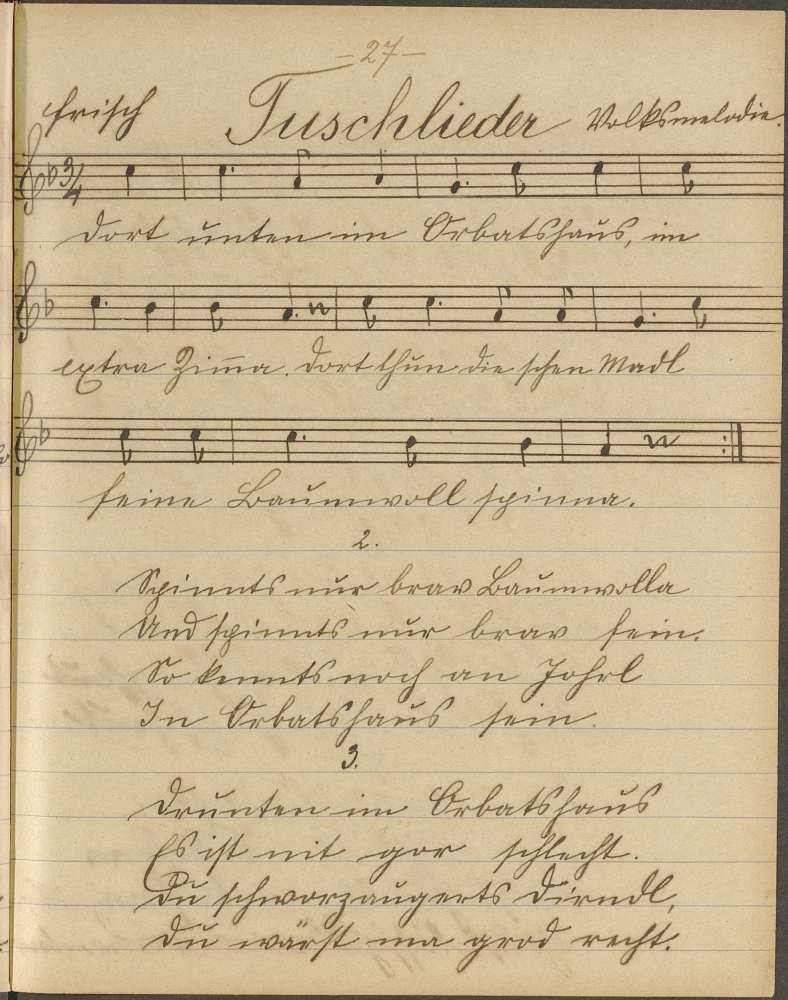 – 27 –
frisch Tuschlieder Volksmelodie.
3/4
Dort unten im Orbatshaus, im
extra Zim̄a. Dort thun die schen Madl
feine Baumwoll spinna.
2.
Spinnts nur brav Baumwolla
Und spinnts nur brav fein.
So kennts noch an Johrl
In Orbatshaus sein.
3.
Drunten im Orbatshaus
Es ist nit gor schlecht.
Du schworzaugerts Dirndl,
Du wärst ma grod recht.